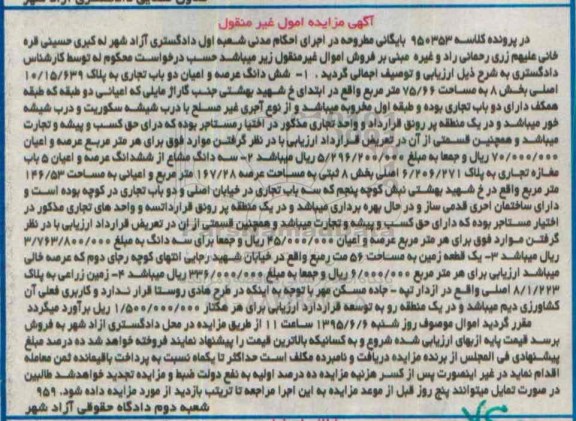 آگهی مزایده اموال غیر منقول
در پرونده کلاسه ۹۵۰۳۵۳ بایگانی مطروحه در اجرای احکام مدنی شعبه اول دادگستری آزاد شهر له کبری حسینی قره
خانی علیهم زری رحمانی راد و غیره مبنی بر فروش اموال غیرمنقول زیر میباشد حسب درخواست محکوم له توسط کارشناس
دادگستری به شرح ذیل ارزیابی و توصیف اجمالی گردید . ۱- شش دانگ عرصه و اعیان دو باب تجاری به پلاک ۱۰/۱۵/۶۳۹
اصلی بخش ۸ به مساحت ۷۵/۶۶ متر مربع واقع در ابتدای خ شهید بهشتی جنب گاراژ مایلی که اعیانی دو طبقه که طبقه
همکف دارای دو باب تجاری بوده و طبقه اول مخروبه میباشد و از نوع آجری غیر مسلح با درب شیشه سکوریت و درب شیشه
خور میباشد و در یک منطقه پر رونق قرارداد و واحد تجاری مذکور در اختیار مستاجر بوده که درای حق کسب و پیشه و تجارت
میباشد و همچنین قسمتی از آن در تعریض قرارداد ارزیابی با در نظر گرفتن موارد فوق برای هر متر مربع عرصه و اعیان
۷۰/۰۰۰/۰۰۰ ریال و جمعا به مبلغ ۵/۲۹۶/۲۰۰/۰۰۰ ریال میباشد ۲- سه دانگ مشاع از ششدانگ عرصه و اعیان ۵ باب
مغازه تجاری به پلاک ۶/۲۰۶/۲۷۱ اصلی بخش ۸ ثبتی به مساحت عرصه ۱۶۷/۲۸ متر مربع و اعیانی به مساحت ۱۴۶/۵۳
متر مربع واقع در خ شهید بهشتی نبش کوچه پنجم که سه باب تجاری در خیابان اصلی و دو باب تجاری در کوچه بوده است و
دارای ساختمان اجری قدمی ساز و در حال بهره برداری میباشد و در یک منطقه پر رونق قرارداتسه و واحد های تجاری مذکور در
اختیار مستاجر بوده که دارای حق کسب و پیشه و تجارت میباشد و همچنین قسمتی از ان در تعریض قرارداد ارزیابی با در نظر
گرفتن موارد فوق برای هر متر مربع عرصه و اعیان ۴۵/۰۰۰/۰۰۰ ریال و جمعا برای سه دانگ به مبلغ ۳/۷۶۳/۸۰۰/۰۰۰
ریال میباشد ۳- یک قطعه زمین به مساحت ۵۶ مت رمبع واقع در خیابان شهید رجایی انتهای کوچه رجای دوم که عرصه خالی
میباشد ارزیابی برای هر متر مربع ۶/۰۰۰/۰۰۰ ریال و جمعا به مبلغ ۳۳۶/۰۰۰/۰۰۰ ریال میباشد ۴- زمین زراعی به پلاک
۸/۱/۲۲۳ اصلی واقع در ازدار تپه - جاده مسکن مهر با توجه به اینکه در طرح هادی روستا قرار ندارد و کاربری فعلی آن
کشاورزی دیم میباشد و در یک منطقه رو به توسعه قراردارد ارزیابی برای هر هکتار ۱/۵۰۰/۰۰۰/۰۰۰ ریال برآورد میگردد
مقرر گردید اموال موصوف روز شنبه ۱۳۹۵/۶/۶ ساعت ۱۱ از طریق مزایده در محل دادگستری ازاد شهر به فروش
برسد قیمت پایه ازبهای ارزیابی شده شروع و به کسانیکه بالاترین قیمت را پیشنهاد نمایند فروخته خواهد شد ده درصد مبلغ
پیشنهادی فی المجلس از برنده مزایده دریافت و نامبرده مکلف است حداکثر تا یکماه نسبت به پرداخت باقیمانده ثمن معامله
اقدام نماید در غیر اینصورت پس از کسر هزینه مزایده ده درصد اولیه به نفع دولت ضبط و مزایده تجدید خواهدشد طالبین
در صورت تمایل میتوانند پنج روز قبل از موعد مزایده به این اجرا مراجعه تا ترتیب بازدید از مورد مزایده داده شود. ۹۵۹
شعبه دوم دادگاه حقوقی آزاد شهر